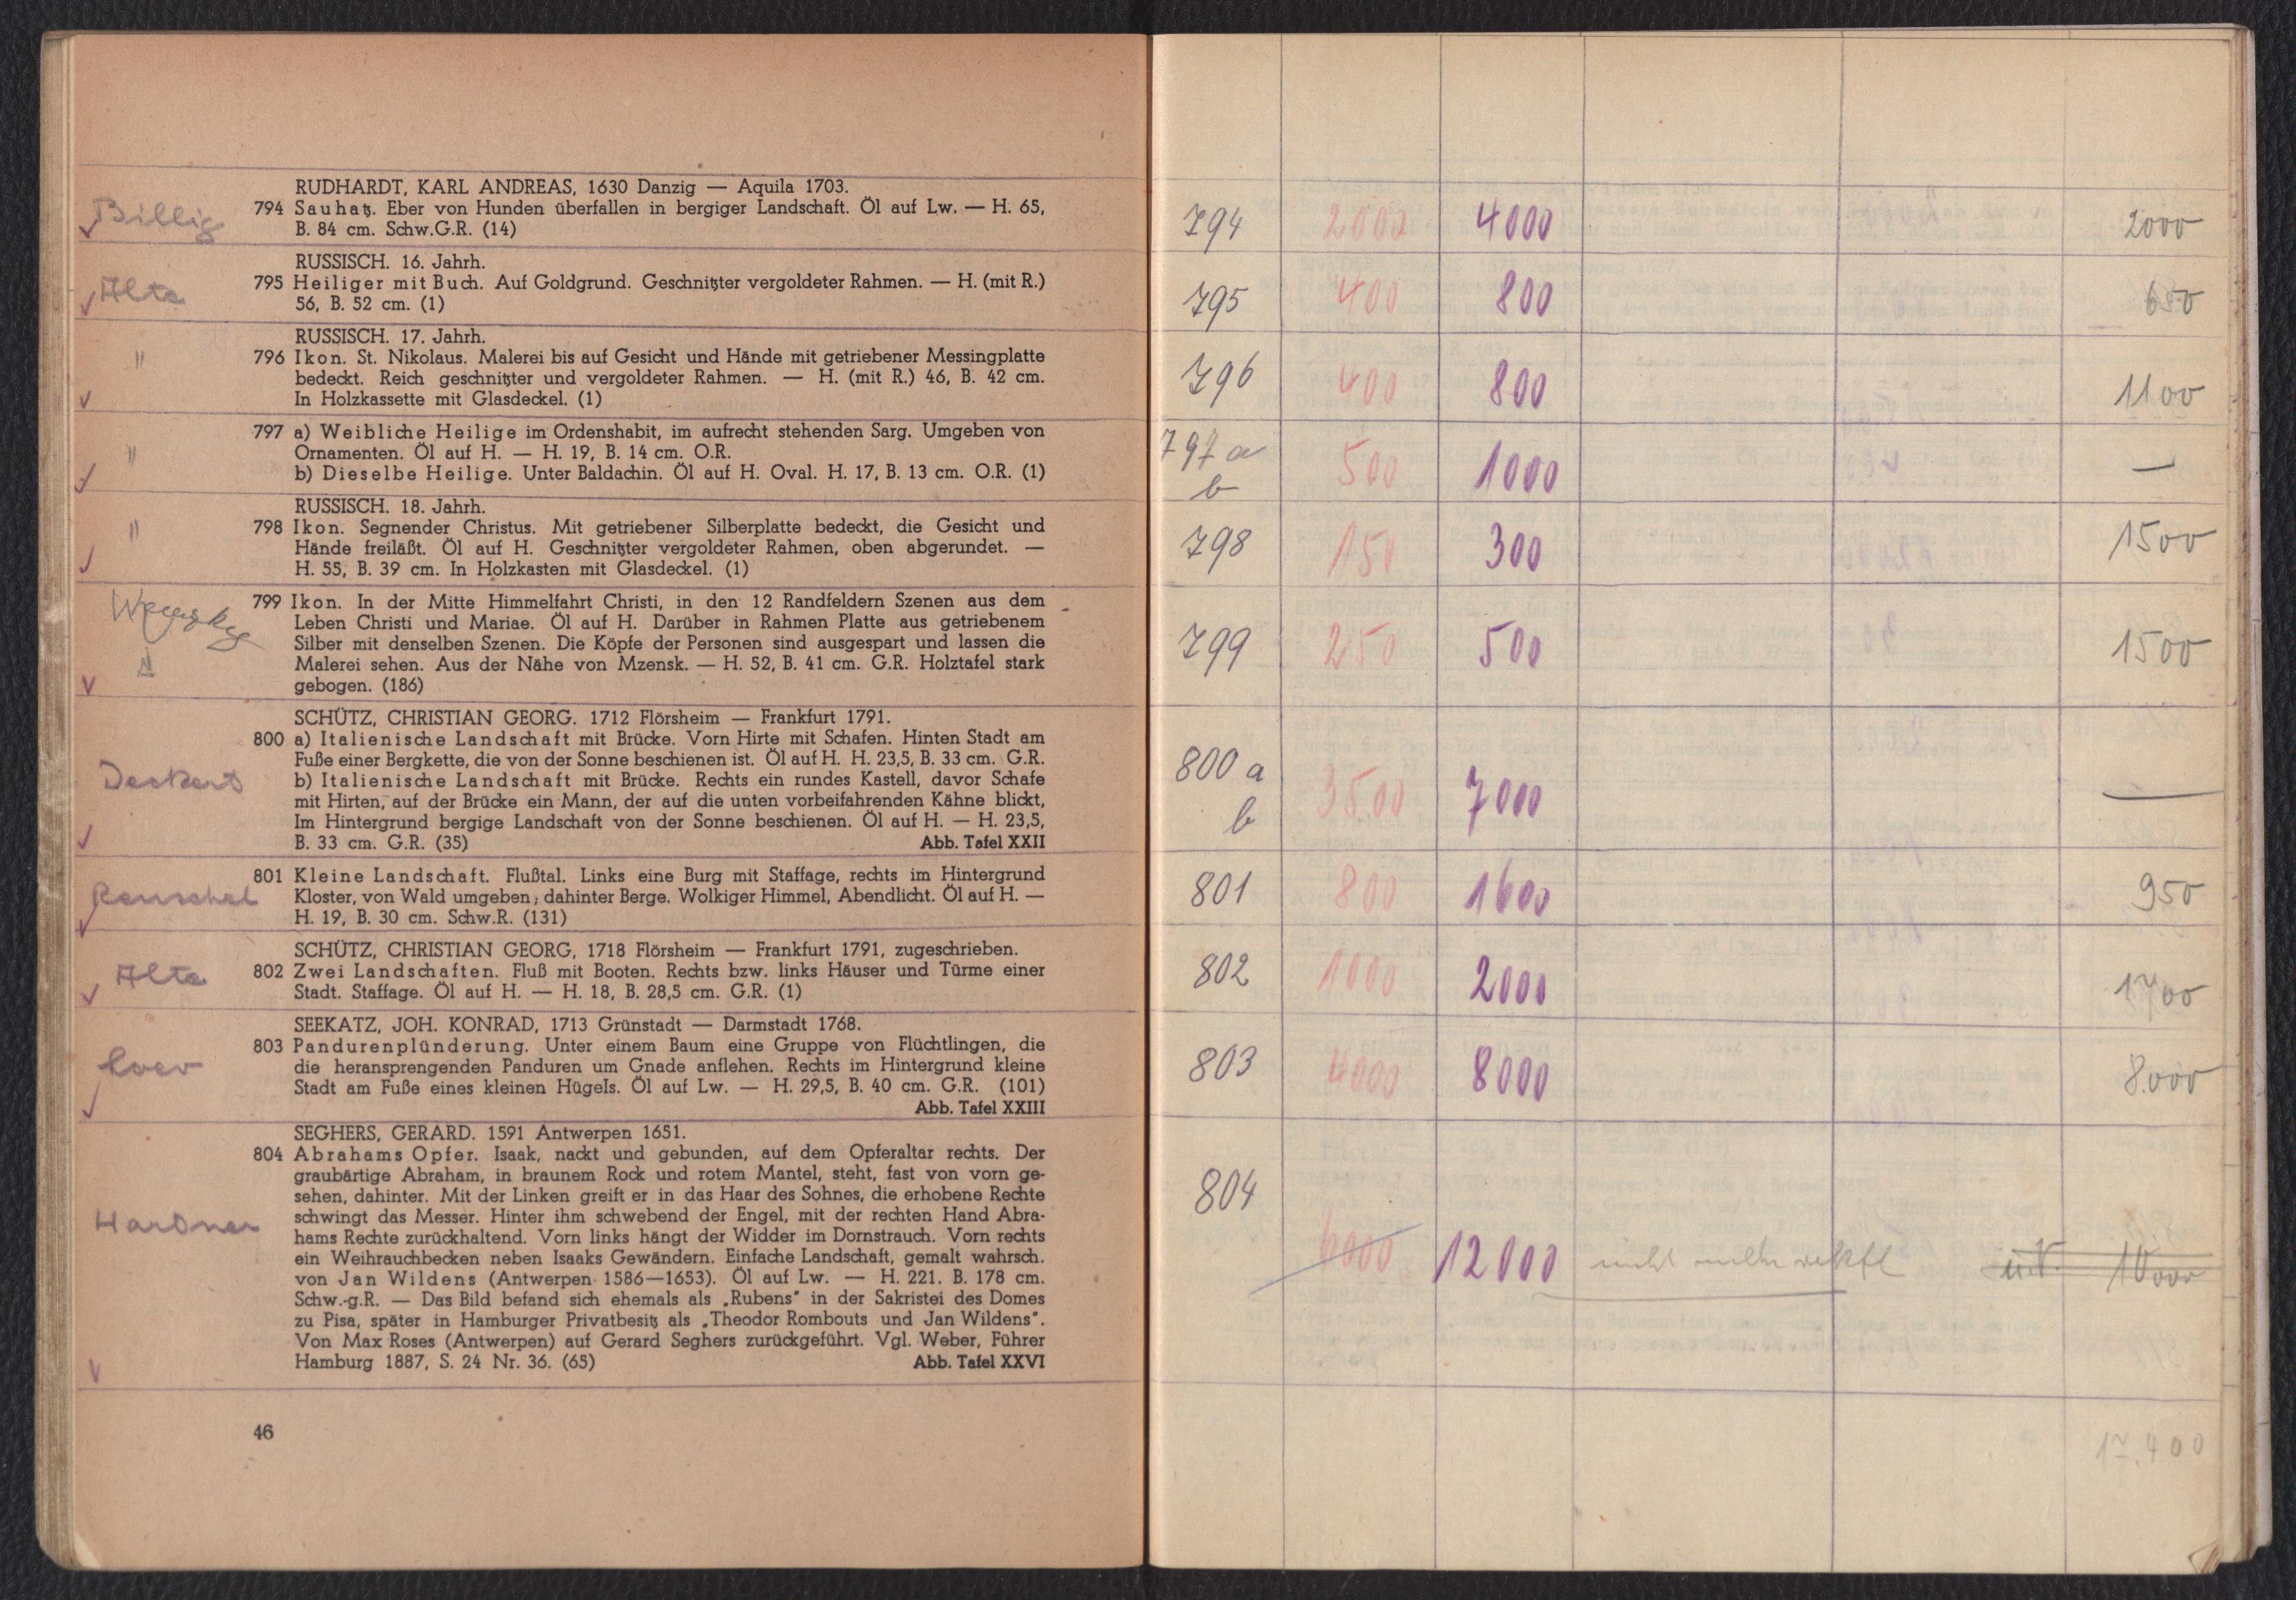 RUDHARDT, KARL ANDREAS, 1630 Danzig — Aquila 1703.
Billig
794 Sauhatz. Eber von Hunden überfallen in bergiger Landschaft. Öl auf Lw. — H. 65,
B. 84 cm. Schw.G.R. (14)
RUSSISCH. 16. Jahrh.
Alte
795 Heiliger mit Buch. Auf Goldgrund. Geschnitzter vergoldeter Rahmen. — H. (mit R.)
56, B. 52 cm. (1)
RUSSISCH. 17. Jahrh.
"
796 Ikon. St. Nikolaus. Malerei bis auf Gesicht und Hände mit getriebener Messingplatte
bedeckt. Reich geschnitzter und vergoldeter Rahmen. — H. (mit R.) 46, B. 42 cm.
In Holzkassette mit Glasdeckel. (1)
"
797 a) Weibliche Heilige im Ordenshabit, im aufrecht stehenden Sarg. Umgeben von
Ornamenten. Öl auf H. — H. 19, B. 14 cm. O.R.
b) Dieselbe Heilige. Unter Baldachin. Öl auf H. Oval. H. 17, B. 13 cm. O.R. (1)
RUSSISCH. 18. Jahrh.
"
798 Ikon. Segnender Christus. Mit getriebener Silberplatte bedeckt, die Gesicht und
Hände freiläßt. Öl auf H. Geschnitzter vergoldeter Rahmen, oben abgerundet. —
H. 55, B. 39 cm. In Holzkasten mit Glasdeckel. (1)
799 Ikon. In der Mitte Himmelfahrt Christi, in den 12 Randfeldern Szenen aus dem
Leben Christi und Mariae. Öl auf H. Darüber in Rahmen Platte aus getriebenem
Silber mit denselben Szenen. Die Köpfe der Personen sind ausgespart und lassen die
Malerei sehen. Aus der Nähe von Mzensk. — H. 52, B. 41 cm. G.R. Holztafel stark
gebogen. (186)
SCHÜTZ, CHRISTIAN GEORG. 1712 Flörsheim — Frankfurt 1791.
800 a) Italienische Landschaft mit Brücke. Vorn Hirte mit Schafen. Hinten Stadt am
Fuße einer Bergkette, die von der Sonne beschienen ist. Öl auf H. H. 23,5, B. 33 cm. G.R.
Deckert
b) Italienische Landschaft mit Brücke. Rechts ein rundes Kastell, davor Schafe
mit Hirten, auf der Brücke ein Mann, der auf die unten vorbeifahrenden Kähne blickt,
Im Hintergrund bergige Landschaft von der Sonne beschienen. Öl auf H. — H. 23,5,
B. 33 cm. G.R. (35) Abb. Tafel XXII
801 Kleine Landschaft. Flußtal. Links eine Burg mit Staffage, rechts im Hintergrund
Reuschel
Kloster, von Wald umgeben, dahinter Berge. Wolkiger Himmel, Abendlicht. Öl auf H. —
H. 19, B. 30 cm. Schw.R. (131)
SCHÜTZ, CHRISTIAN GEORG, 1718 Flörsheim — Frankfurt 1791, zugeschrieben.
Alte
802 Zwei Landschaften. Fluß mit Booten. Rechts bzw. links Häuser und Türme einer
Stadt. Staffage. Öl auf H. — H. 18, B. 28,5 cm. G.R. (1)
SEEKATZ, JOH. KONRAD, 1713 Grünstadt — Darmstadt 1768.
803 Pandurenplünderung. Unter einem Baum eine Gruppe von Flüchtlingen, die
die heransprengenden Panduren um Gnade anflehen. Rechts im Hintergrund kleine
Stadt am Fuße eines kleinen Hügels. Öl auf Lw. — H. 29,5, B. 40 cm. G.R. (101)
Abb. Tafel XXIII
SEGHERS, GERARD. 1591 Antwerpen 1651.
804 Abrahams Opfer. Isaak, nackt und gebunden, auf dem Opferaltar rechts. Der
graubärtige Abraham, in braunem Rock und rotem Mantel, steht, fast von vorn ge-
sehen, dahinter. Mit der Linken greift er in das Haar des Sohnes, die erhobene Rechte
Hardner
schwingt das Messer. Hinter ihm schwebend der Engel, mit der rechten Hand Abra-
hams Rechte zurückhaltend. Vorn links hängt der Widder im Dornstrauch. Vorn rechts
ein Weihrauchbecken neben Isaaks Gewändern. Einfache Landschaft, gemalt wahrsch.
von Jan Wildens (Antwerpen 1586—1653). Öl auf Lw. — H. 221. B. 178 cm.
Schw.-g.R. — Das Bild befand sich ehemals als „Rubens" in der Sakristei des Domes
zu Pisa, später in Hamburger Privatbesitz als „Theodor Rombouts und Jan Wildens".
Von Max Roses (Antwerpen) auf Gerard Seghers zurückgeführt. Vgl. Weber, Führer
Hamburg 1887, S. 24 Nr. 36. (65) Abb. Tafel XXVI
46
794 2000 4000 2000
795 400 800 650
796 400 800 1100
797 a 500 1000 —
b
798 150 300 1500
799 250 500 1500
800 a 3500 7000 —
b
801 800 1600 950
802 1000 2000 1700
803 4000 8000 8000
804
6000 12000 nicht mehr 10000
17.400